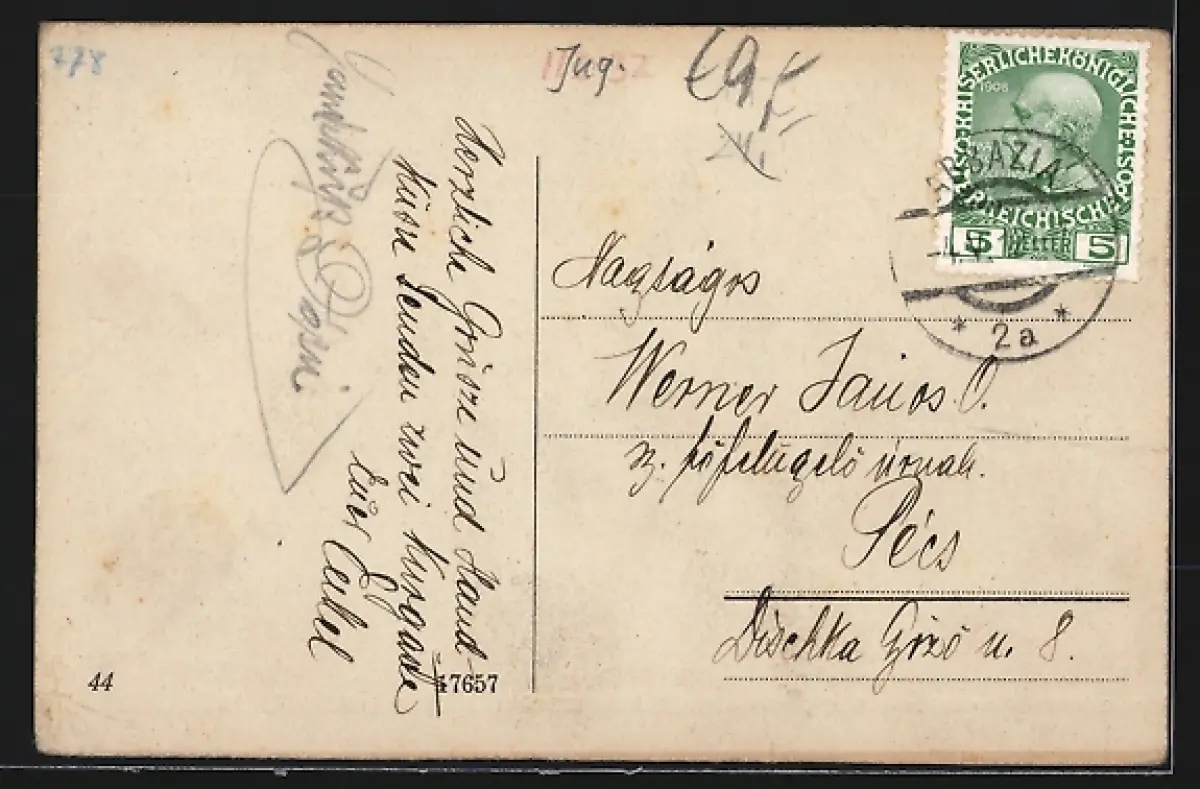 278
Jug.
KAISERLICHE KÖNIGLICHE ÖSTERREICHISCHE
1908
5 HELLER 5
ABBAZIA
* 2a *
Herzliche Grüsze und Hand-
küsse senden zwei Kurgäste
Euer Enkel
Dorni
Nagságos
Werner Janos Ö.
főfelügelő úrnak.
Pécs
Dischka Győző u. 8.
44
47657